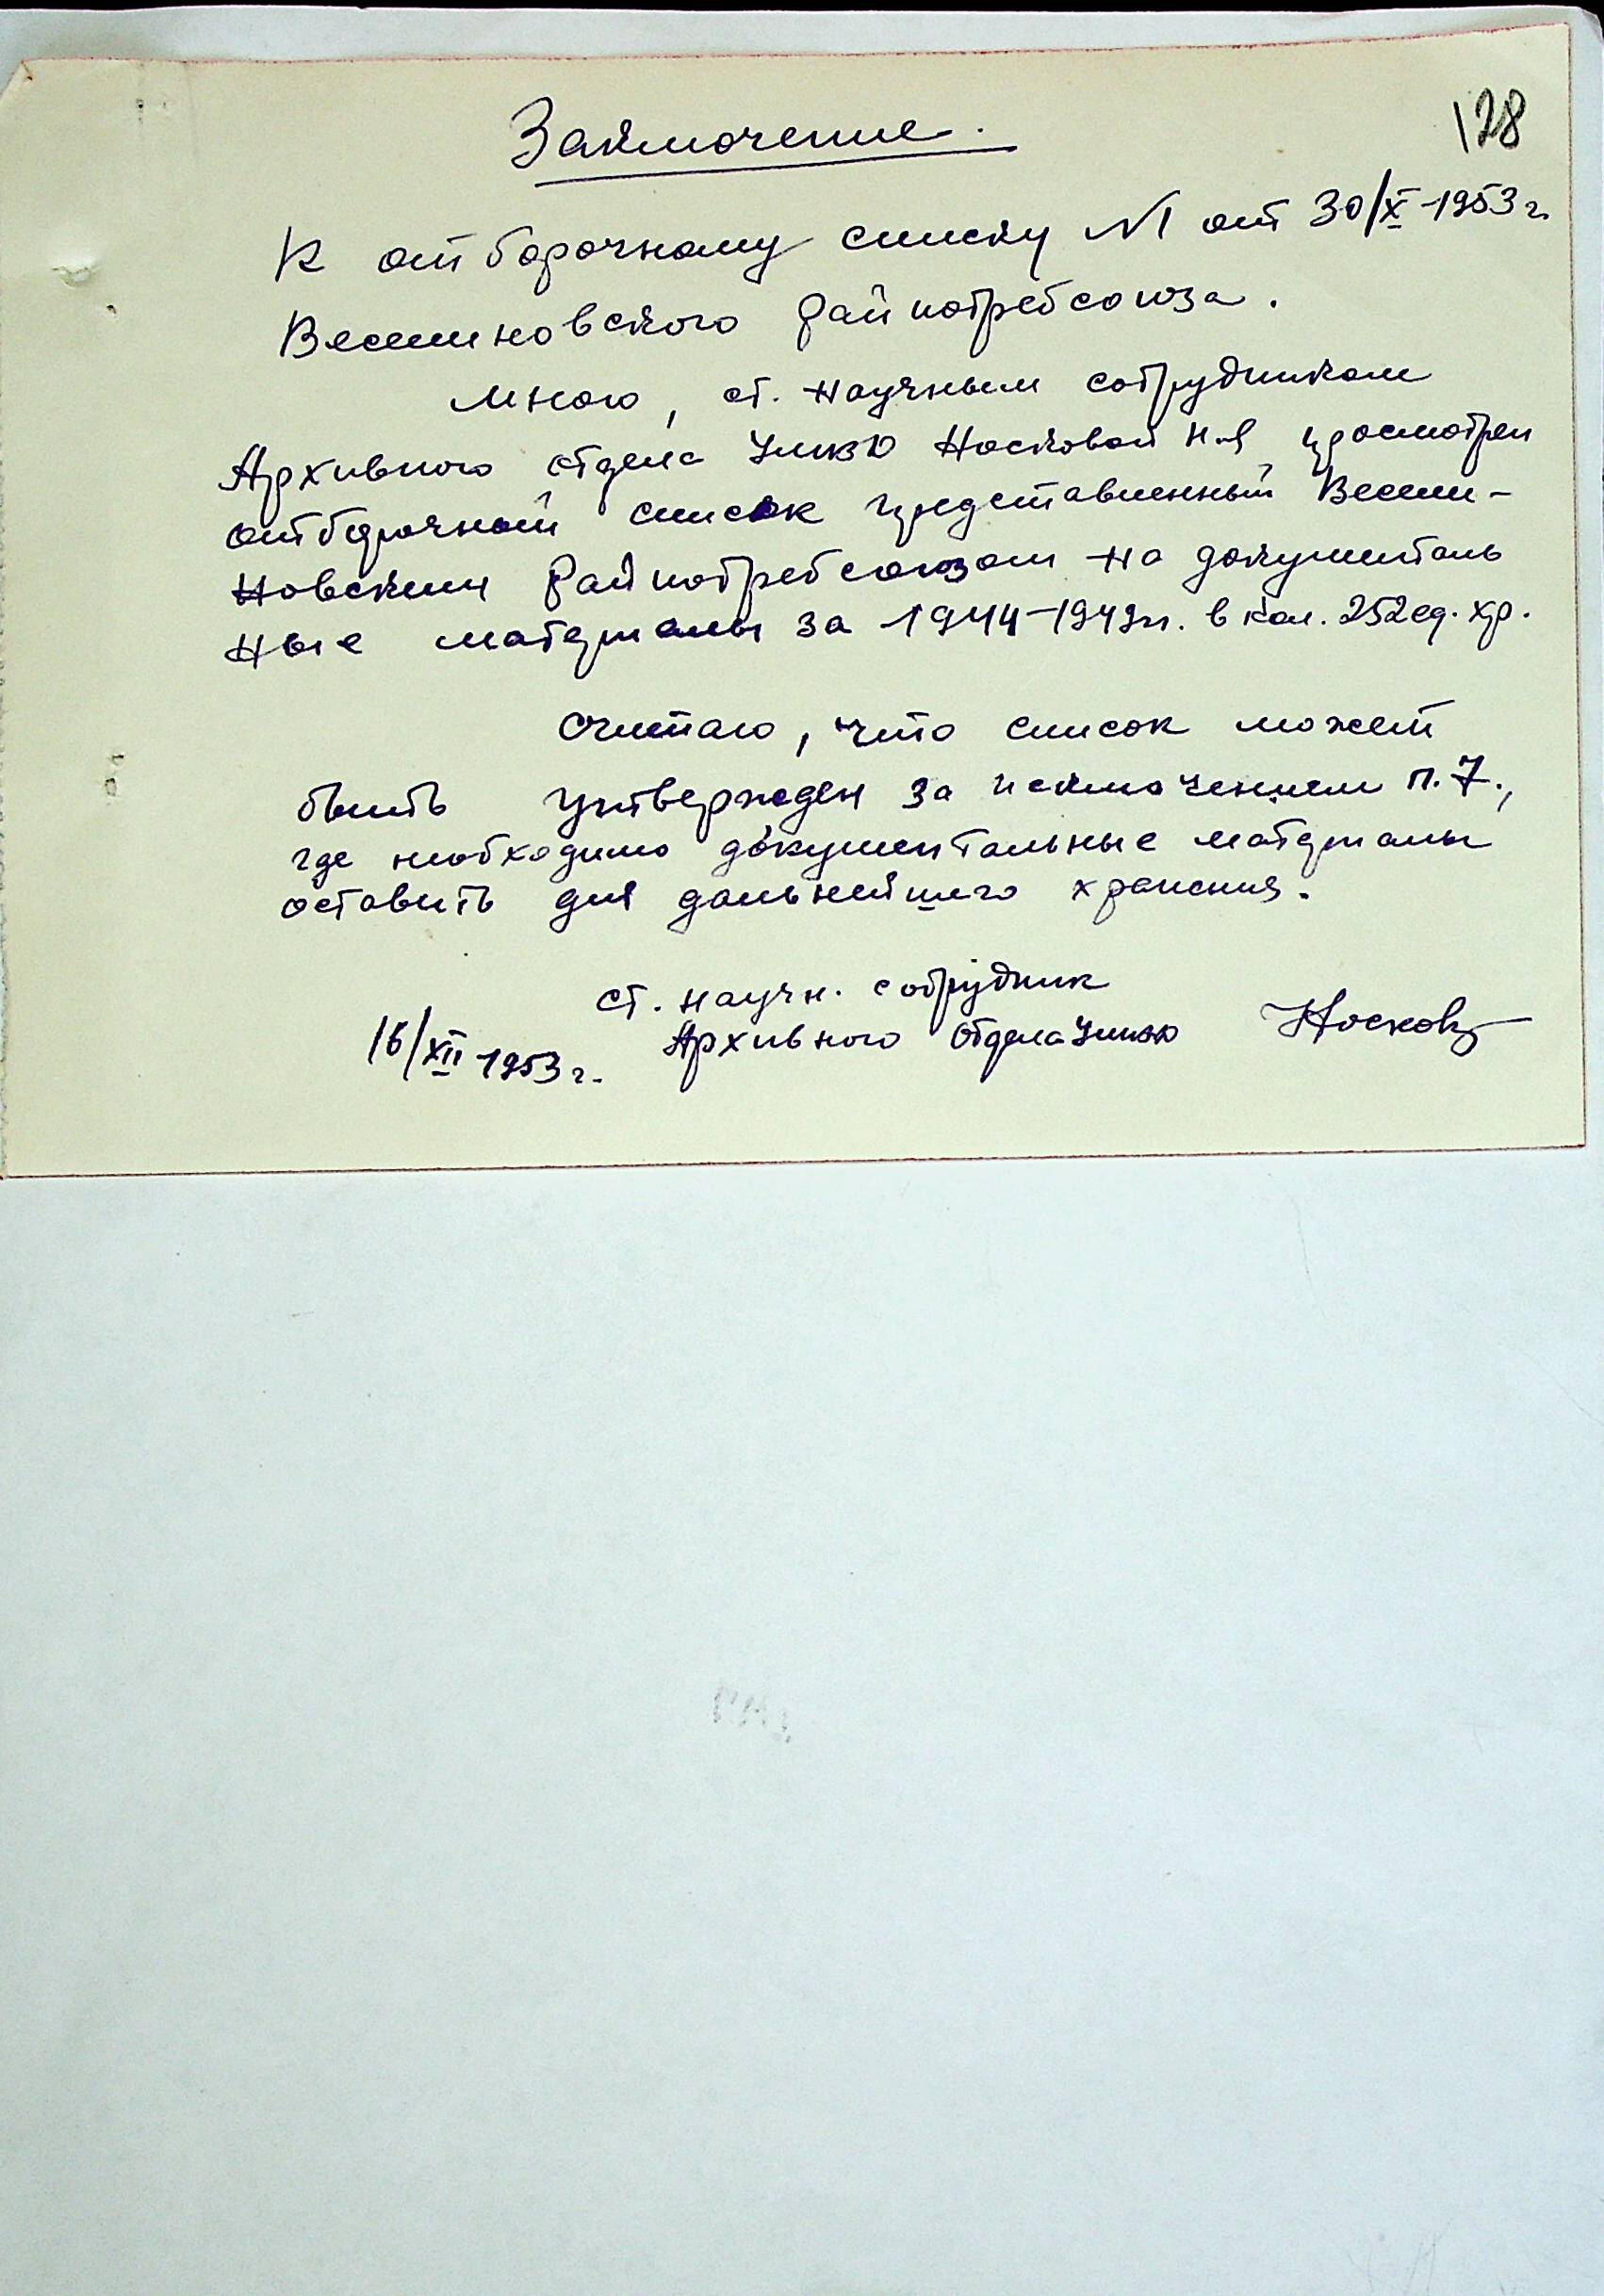 128
Заключение.
К отборочному списку №1 от 30/X-1953 г.
Веселиновского Райпотребсоюза.
Мною, ст. научным сотрудником
Архивного отдела УМВД Носковой Н.Я просмотрен
отборочный список представленный Весели-
новским Райпотребсоюзом на документаль
ные материалы за 1944-1949 гг. в кол. 252 ед. хр.
Считаю, что список может
быть утвержден за исключением п. 7.,
где необходимо документальные материалы
оставить для дальнейшего хранения.
ст. научн. сотрудник
Архивного отдела Носкова
16/XII 1953 г.